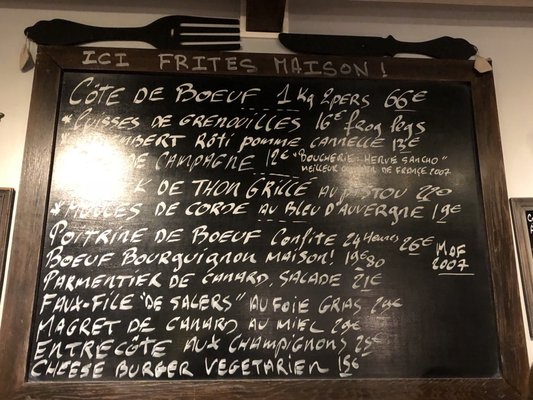 ICI FRITES MAISON !
CÔTE DE BOEUF 1Kg 2pers 66€
*CUISSES DE GRENOUILLES 16€ frog legs
RÔTI POMME CANNELLE 13€
DE CAMPAGNE 12€ "BOUCHERIE HERVÉ SANCHO"
MEILLEUR DE FRANCE 2007
DE THON GRILLÉ AU PISTOU 22€
* DE CORDE AU BLEU D'AUVERGNE 19€
POITRINE DE BOEUF CONFITE 24 HEURES 26€
BOEUF BOURGUIGNON MAISON! 19€80
MOF
2007
PARMENTIER DE CANARD, SALADE 21€
FAUX-FILE "DE SALERS" AU FOIE GRAS
MAGRET DE CANARD AU MIEL
ENTRECÔTE AUX CHAMPIGNONS
CHEESE BURGER VEGETARIEN